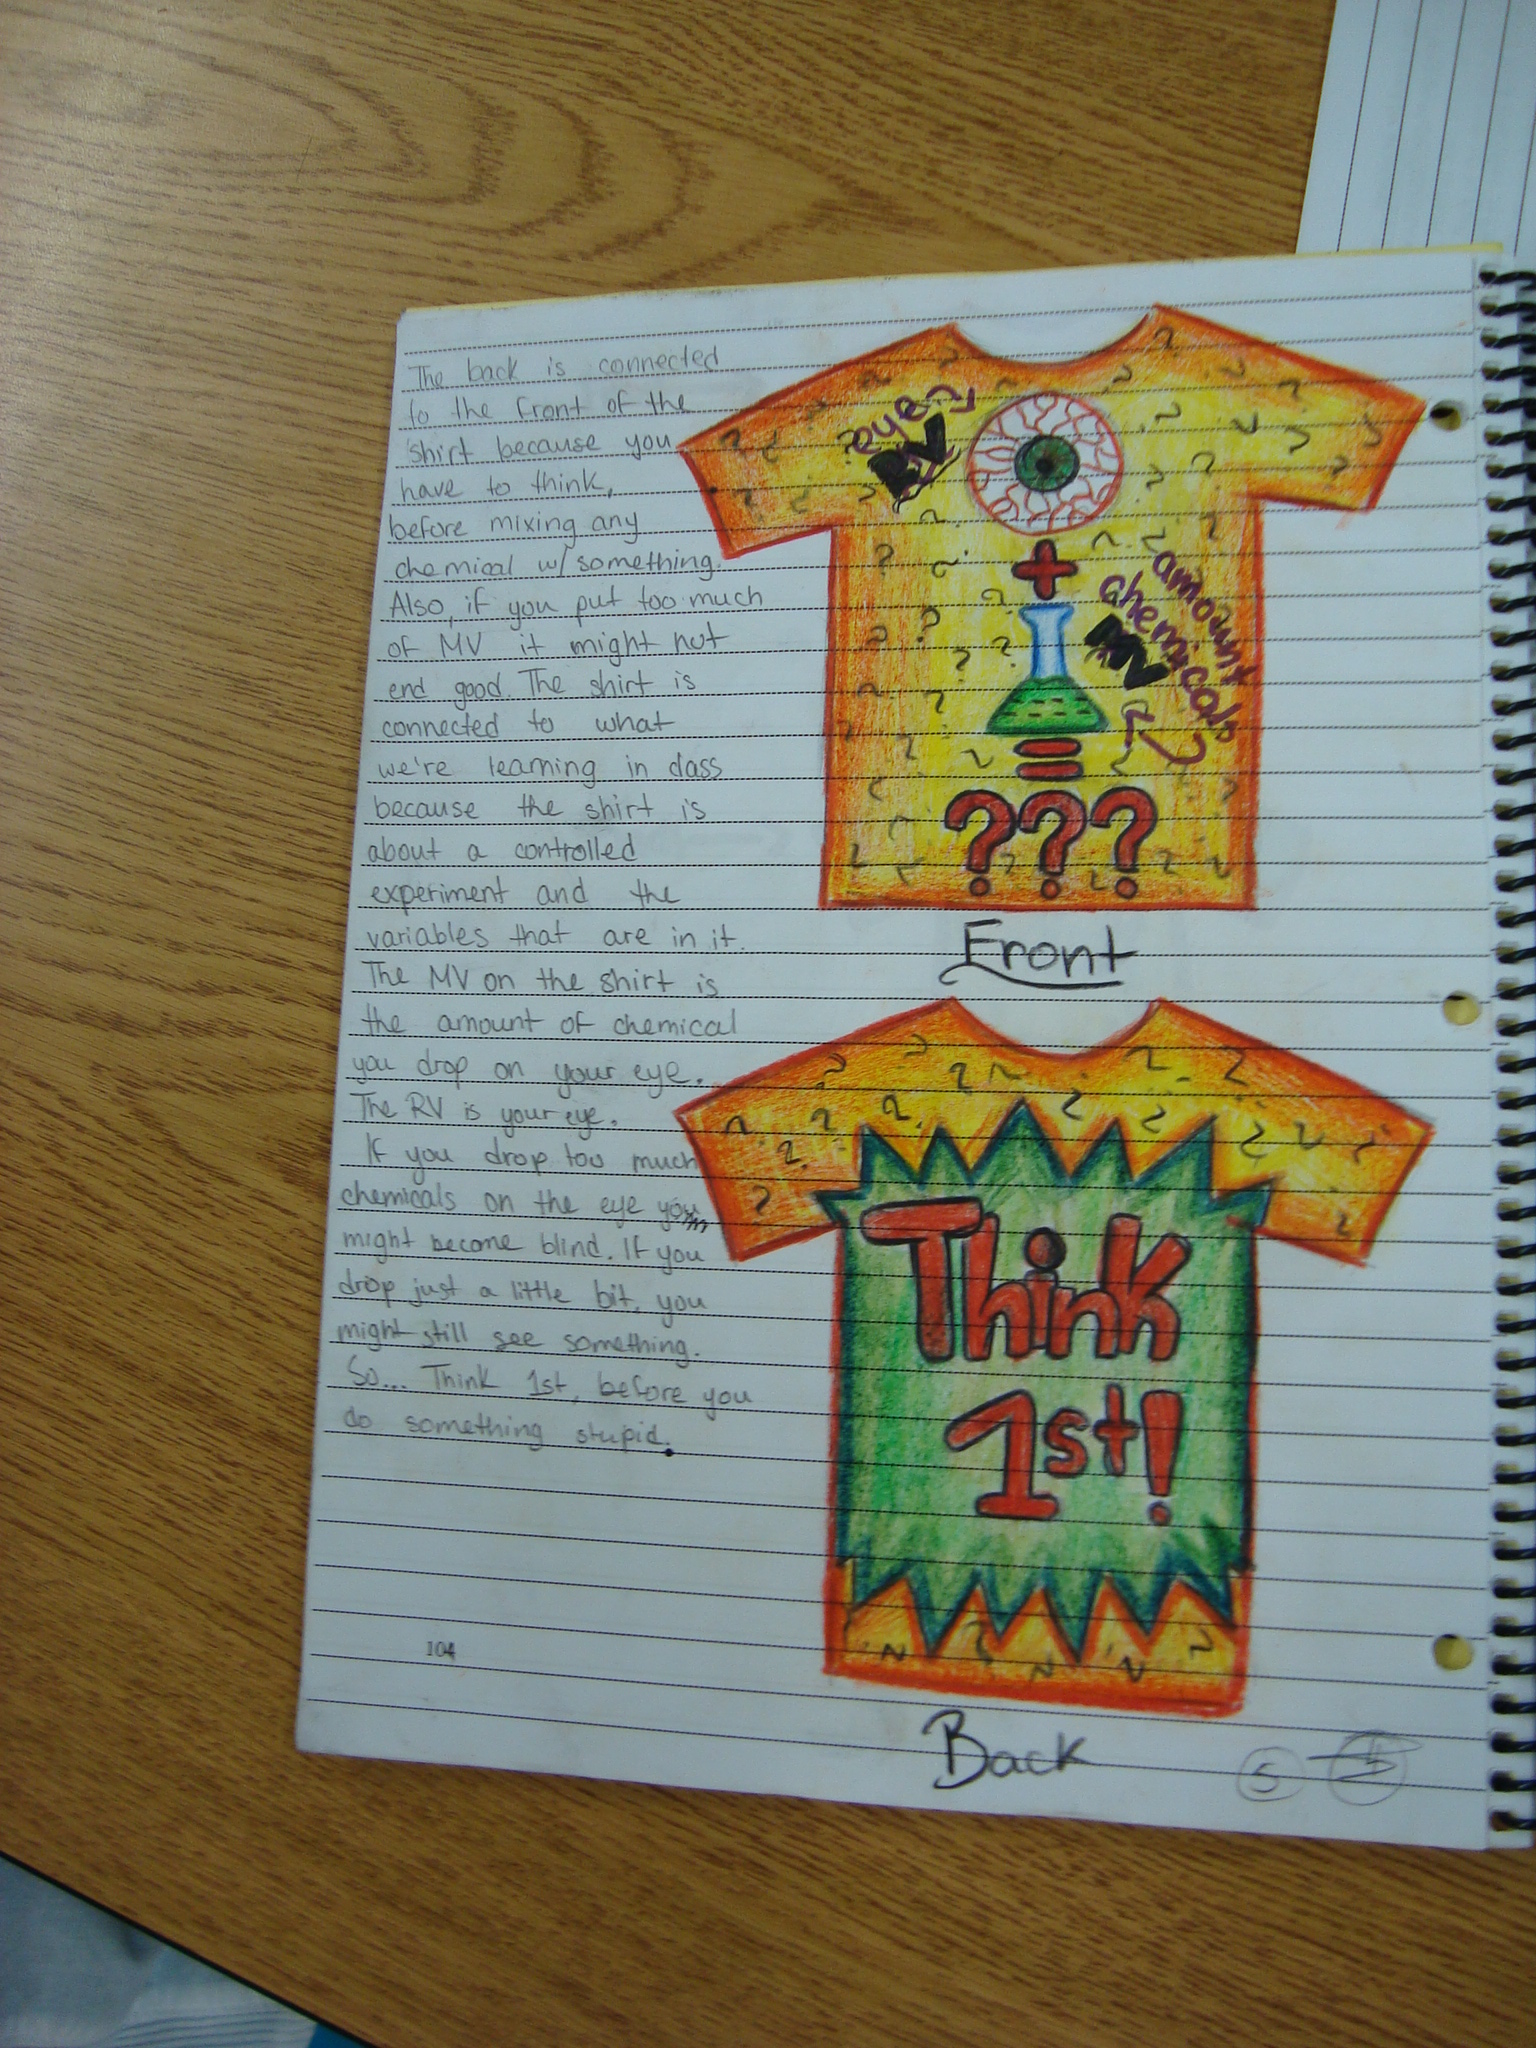 The back is connected
to the front of the
shirt because you
have to think,
before mixing any
chemical w/ something.
Also, if you put too much
of MV it might not
end good. The shirt is
connected to what
we're learning in class
because the shirt is
about a controlled
experiment and the
variables that are in it.
The MV on the shirt is
the amount of chemical
you drop on your eye.
The RV is your eye.
If you drop too much
chemicals on the eye you
might become blind. If you
drop just a little bit, you
might still see something.
So... Think 1st, before you
do something stupid.
104
eye
RV
+
amount
chemicals
MV
=
???
Front
Think
1st!
Back
5